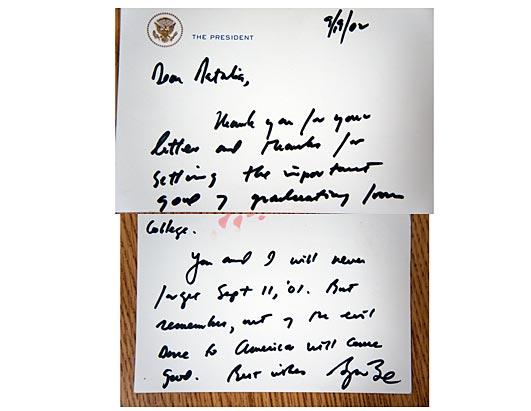 THE PRESIDENT
9/19/02
Dear Natalia,
Thank you for your
letter and thanks for
setting the important
goal of graduating from
College.
You and I will never
forget Sept 11, '01. But
remember, out of the evil
done to America will come
good. Best wishes